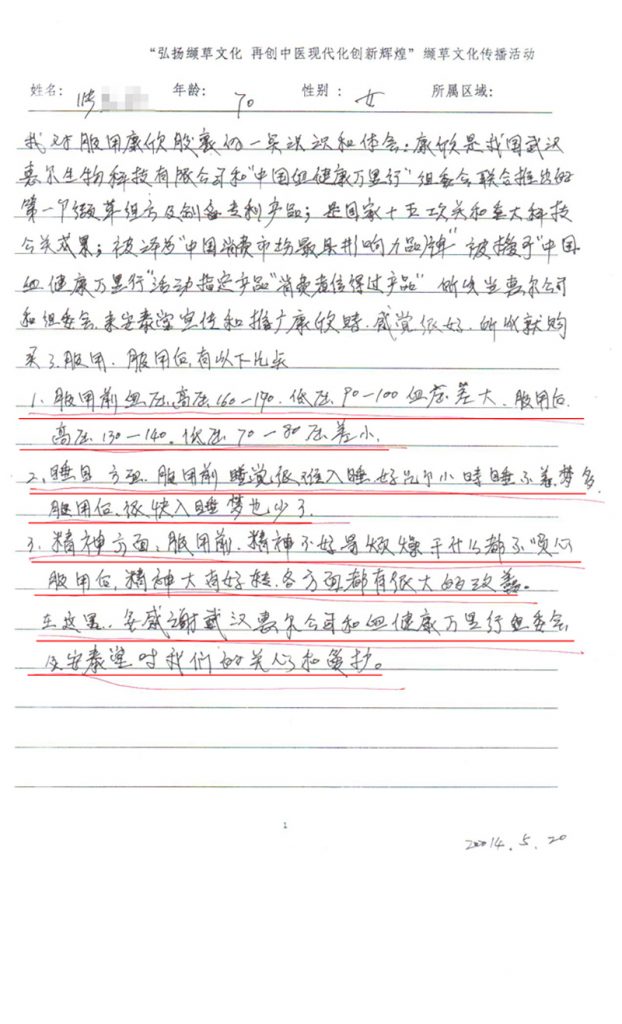 “弘扬缬草文化 再创中医现代化创新辉煌” 缬草文化传播活动
姓名： 年龄： 70 性别： 女 所属区域：
我对服用康欣胶囊的一点认识和体会：康欣是我国武汉
惠尔生物科技有限公司和“中国血健康万里行”组委会联合推出的
第一个缬草组方及制备专利产品；是国家十五攻关和重大科技
公关成果；被评为“中国消费市场最具影响力品牌”被授予“中国
血健康万里行”活动指定产品“消费者信得过产品”所以当惠尔公司
和组委会来安泰堂宣传和推广康欣时，感觉很好，所以就购
买了服用，服用后有以下几点
1、服用前血压高压160—190．低压90—100血压差大．服用后
高压130—140．低压70—80压差小．
2、睡眠方面．服用前睡觉很难入睡．好几个小時睡不着．梦多．
服用后很快入睡梦也少了．
3、精神方面：服用前．精神不好易烦燥干什么都不顺心
服用后，精神大有好转，各方面都有很大的改善。
在这里．感谢武汉惠尔公司和血健康万里行组委会
及安泰堂对我们的关心和爱护。
1
2014.5.20